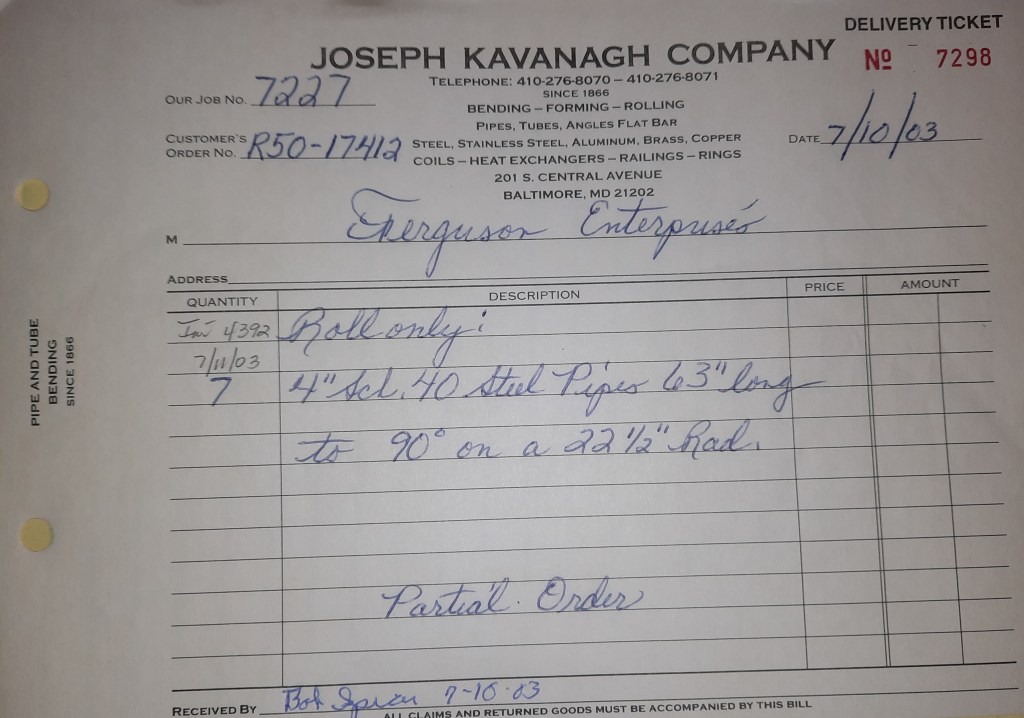 DELIVERY TICKET
JOSEPH KAVANAGH COMPANY
Nº 7298
TELEPHONE: 410-276-8070 – 410-276-8071
SINCE 1866
OUR JOB NO. 7227
BENDING – FORMING – ROLLING
PIPES, TUBES, ANGLES FLAT BAR
CUSTOMER'S ORDER NO. R50-17412
STEEL, STAINLESS STEEL, ALUMINUM, BRASS, COPPER
DATE 7/10/03
COILS – HEAT EXCHANGERS – RAILINGS – RINGS
201 S. CENTRAL AVENUE
BALTIMORE, MD 21202
M Ferguson Enterprises
ADDRESS
QUANTITY DESCRIPTION PRICE AMOUNT
Inv 4392 Roll only:
7/11/03
7 4" Sch. 40 Steel Pipes 63" long
to 90° on a 22 1/2" Rad.
Partial Order
RECEIVED BY Bob 7-10-03
ALL CLAIMS AND RETURNED GOODS MUST BE ACCOMPANIED BY THIS BILL
PIPE AND TUBE
BENDING
SINCE 1866